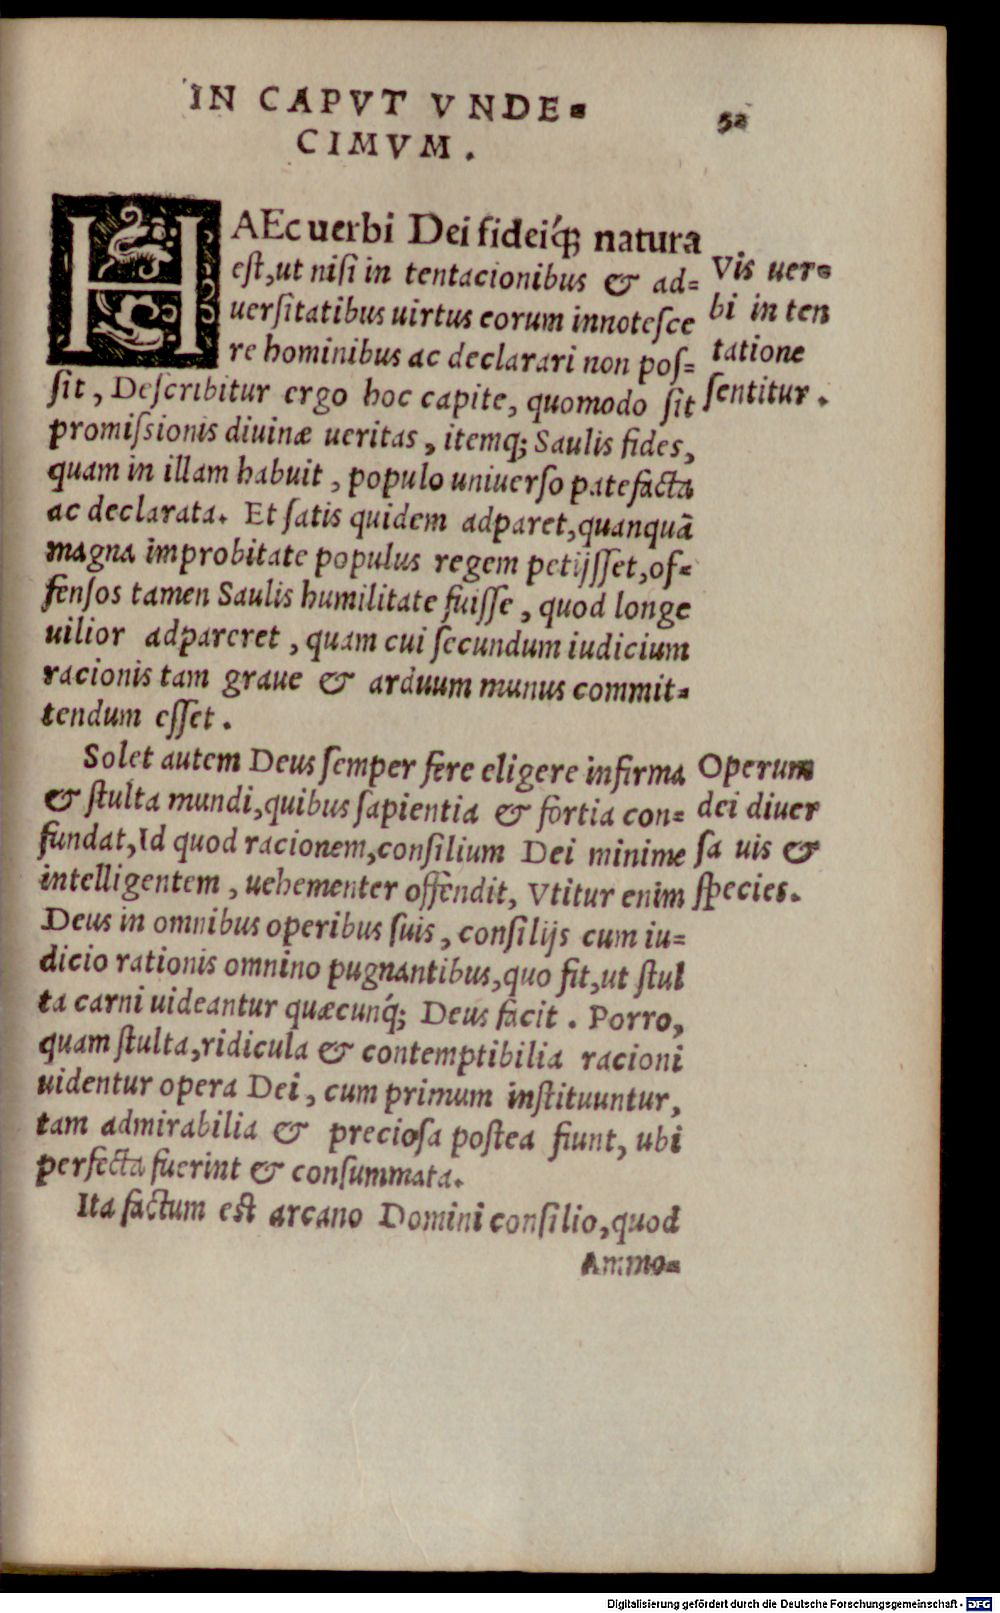 IN CAPVT VNDE=
CIMVM.
52
HAEc uerbi Dei fideiq́; natura
est, ut nisi in tentacionibus & ad=
uersitatibus uirtus eorum innotesce
re hominibus ac declarari non pos=
sit, Describitur ergo hoc capite, quomodo sit
promissionis diuinæ ueritas, itemq; Saulis fides,
quam in illam habuit, populo uniuerso patefacta
ac declarata. Et satis quidem adparet, quanquā
magna improbitate populus regem petijsset, of=
fensos tamen Saulis humilitate fuisse, quod longe
uilior adpareret, quam cui secundum iudicium
racionis tam graue & arduum munus commit=
tendum esset.
Vis uer=
bi in ten
tatione
sentitur.
Solet autem Deus semper fere eligere infirma
& stulta mundi, quibus sapientia & fortia con=
fundat, Id quod racionem, consilium Dei minime
intelligentem, uehementer offendit, Vtitur enim
Deus in omnibus operibus suis, consilijs cum iu=
dicio rationis omnino pugnantibus, quo fit, ut stul
ta carni uideantur quæcunq́; Deus facit. Porro,
quam stulta, ridicula & contemptibilia racioni
uidentur opera Dei, cum primum instituuntur,
tam admirabilia & preciosa postea fiunt, ubi
perfecta fuerint & consummata.
Operum
dei diuer
sa uis &
species.
Ita factum est arcano Domini consilio, quod
Ammo=
Digitalisierung gefördert durch die Deutsche Forschungsgemeinschaft - DFG